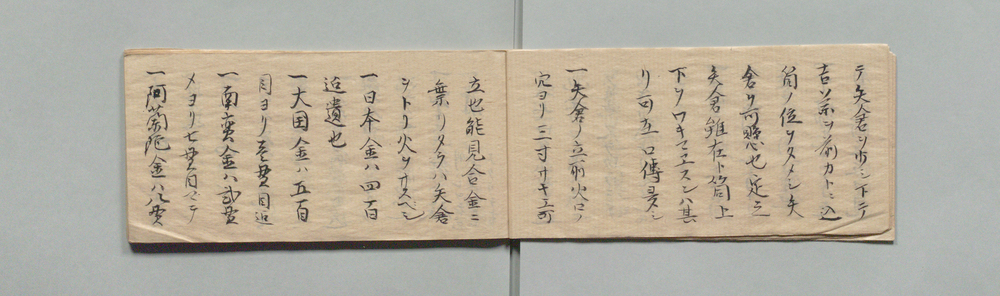 テ矢倉ヲ歩ミ下ニテ
筒ノ位ヲタメシ矢
倉ヲ可懸也定之
矢倉雖在ト筒上
下ヲワキマエスンハ其
リ可互口傳ヨミシ
一矢倉ノ立所火口ノ
穴ヨリ三寸サキエ可
立也能見合金ニ
葉リタラハ矢倉
シトリ火ヲサスベシ
一日本金ハ四百
迠遣也
一大国金ハ五百
目ヨリ壱貫目迠
一南蛮金ハ弐貫
メヨリ七貫目マテ
一阿蘭陀金ハ八貫